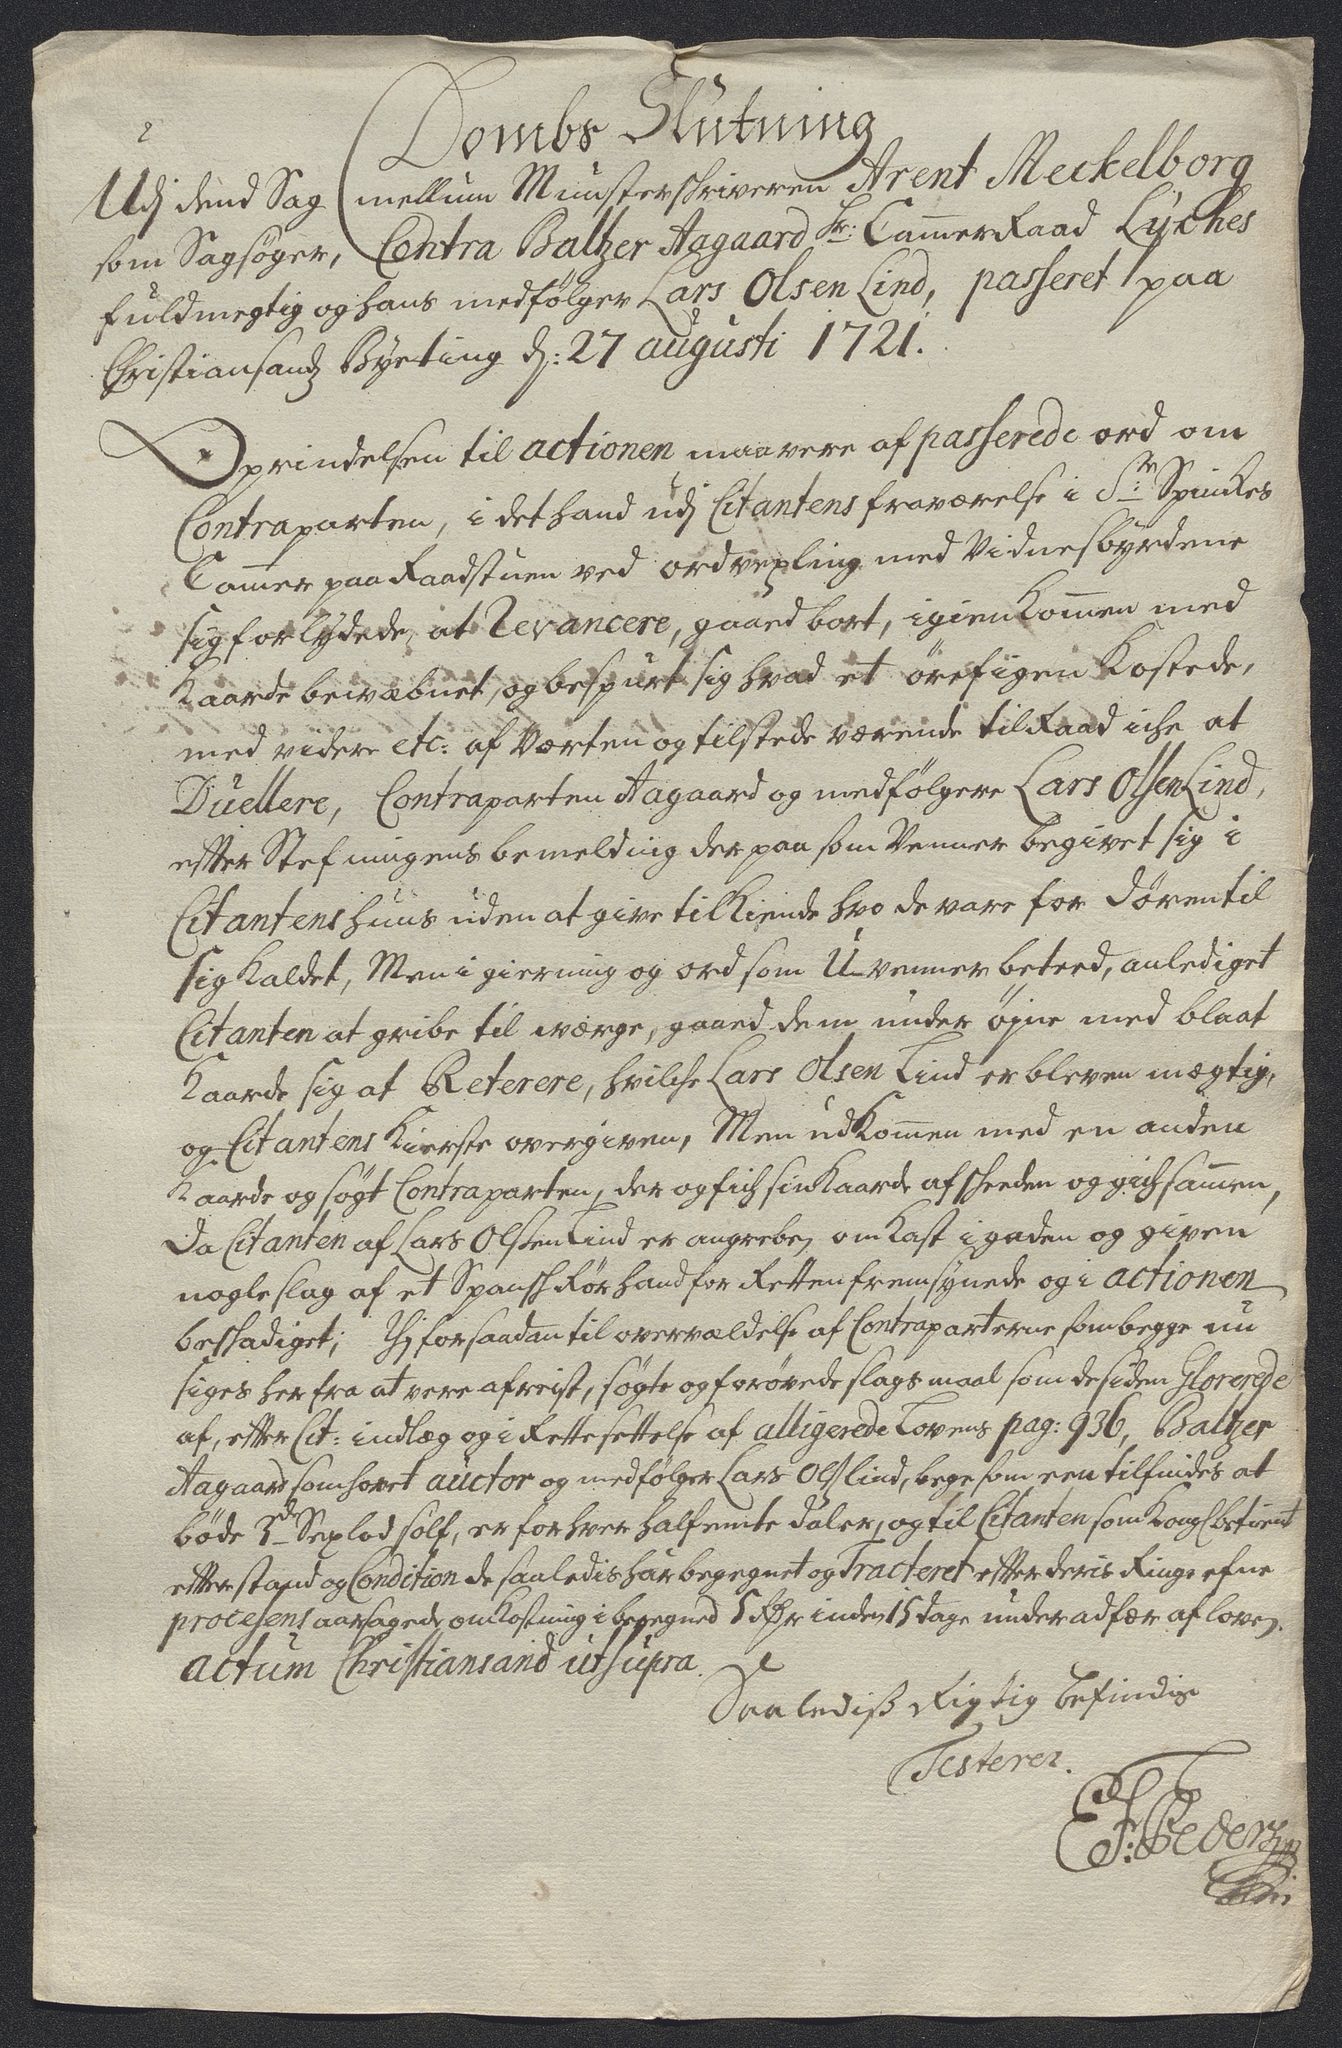 Dombs Slutning
Udj dend Sag mellum Munsterschriveren Arent Meckelborg
som Sagsøger, Contra Baltzer Aagaard Hr: Cam̄erRaad Lyches
fuldmegtig og hans medfølger Lars Olsen Lind, passeret paa
Christiansandz Byeting d: 27 augusti 1721.
Oprindelsen til actionen maa vere af passerede ord om
Contraparten, i det hand udj Citantens fraværelse i Sr: Spinkes
Cam̄er paa Raadstuen ved ordvexling med Vidnesbyrdene
sig forlydede at Revancere, gaaed bort, igienkom̄en med
Kaarde bewæbnet, og bespurt sig hvad et ørefigen kostede,
med videre etc: af Værten og tilstede værende tilRaad iche at
Duellere, Contraparten Aagaard og medfølgere Lars Olsen Lind,
effter Stefningens bemelding der paa som Venner begivet sig i
Citantens huus uden at give tilkiende hvo de vare for døren til
sig kaldet, Men i gierning og ord som U-venner beteed, anlediget
Citanten at gribe til wærge, gaaed dem under øyne med blaat
Kaarde sig at Reterere, hvilche Lars Olsen Lind er bleven mægtig,
og Citantens kierste overgiven, Men udkom̄en med en anden
Kaarde og søgt Contraparten, der og fich sin Kaarde af scheeden og gich sam̄en,
da Citanten af Lars Olsen Lind er angreben, omkast i gaden og given
nogle slag af et Spansk Rør hand for Retten fremsynede og i actionen
beskadiget; Thj for saadan til overvældelse af Contraparterne som begge nu
siges her fra at vere afreist, søgte og forøvede slagsmaal som de siden Glorerede
af, effter Cit: indlæg og i Rettesettelse af alligerede Lovens pag: 936, Baltzer
Aagaard som hovet auctor og medfølger Lars Ols Lind, bege som een tilfindes at
bøde 3de Sexlod sølf, er for hver halfemte daler, og til Citanten som Kongl betient
effter stand og Condition de saaledis har begegnet og Tracteret effter deris Ringe efne
procesens aarsagede omkostning i begegned 5 Rdr inden 15 dage under adfær af loven.
actum Christiansand ut supra.
Saalediß Rigtig befindis
Testerer.
E. F: Pedersen